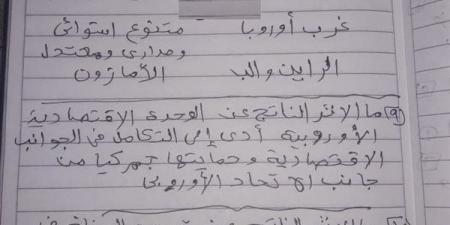 غرب أوروبا متنوع استوائى
ومدارى ومعتدل
الراين والب الأمازون
٩) ما الاثر الناتج عن الوحدة الاقتصادية
الأوروبية أدى إلى التكامل فى الجوانب
الاقتصادية وحمايتها جمركيا من
جانب الاتحاد الأوروبى